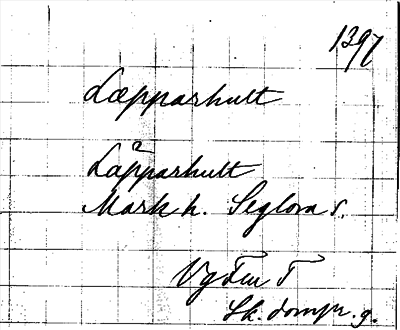 1397
Læpparhult
Läpparhult
Mark h. Seglora s.
Vg Fru T
Sk. domk. g.